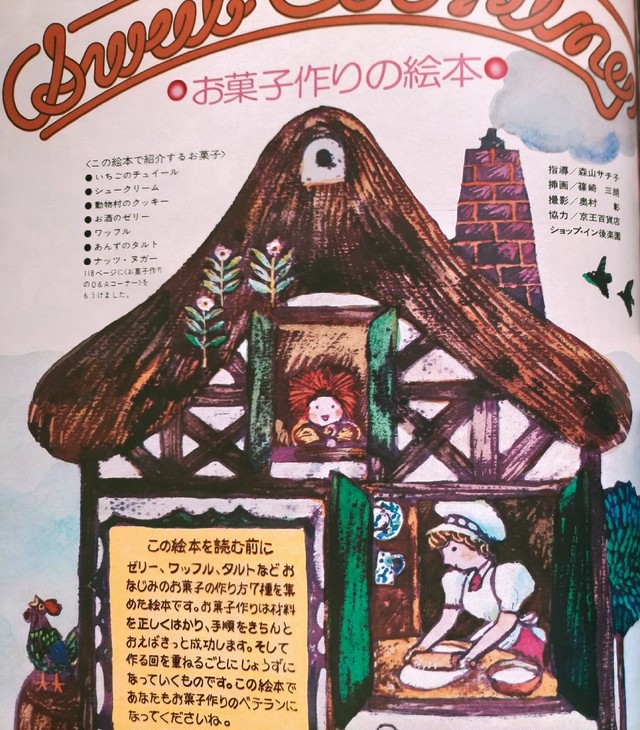 Sweet Cooking
お菓子作りの絵本
〈この絵本で紹介するお菓子〉
●いちごのチュイール
●シュークリーム
●動物村のクッキー
●お酒のゼリー
●ワッフル
●あんずのタルト
●ナッツ・ヌガー
118ページに〈お菓子作り
のQ&Aコーナー〉を
もうけました。
指導／森山サチ子
挿画／篠崎 三朗
撮影／奥村 彰
協力／京王百貨店
ショップ・イン後楽園
この絵本を読む前に
ゼリー、ワッフル、タルトなどお
なじみのお菓子の作り方7種を集
めた絵本です。お菓子作りは材料
を正しくはかり、手順をきちんと
おえばきっと成功します。そして
作る回を重ねるごとにじょうずに
なっていくものです。この絵本で
あなたもお菓子作りのベテランに
になってくださいね。